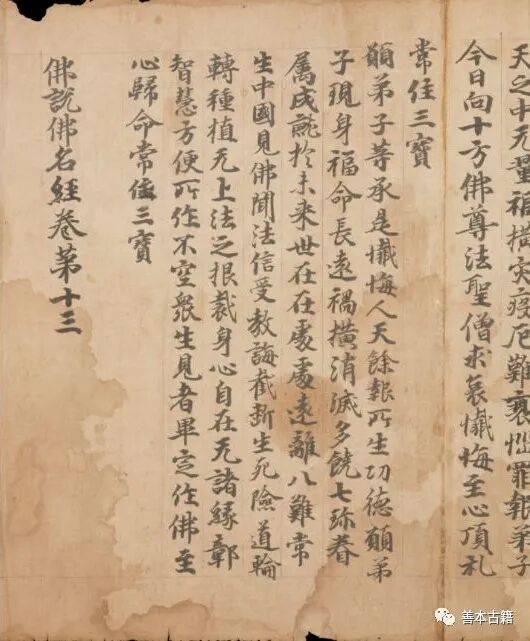 天之中无量福横灾疫厄難衰惱罪報弟子
今日向十方佛尊法聖僧求哀懺悔至心頂礼
常住三寶
願弟子等承是懺悔人天餘報所生功德願弟
子現身福命長遠禍横消滅多饒七珎眷
屬成就於未来世在在處處遠離八難常
生中國見佛聞法信受教誨截斷生死險道輪
轉種植无上法之根栽身心自在无諸緣鄣
智慧方便所作不空衆生見者畢定作佛至
心歸命常住三寶
佛説佛名經卷第十三
善本古籍